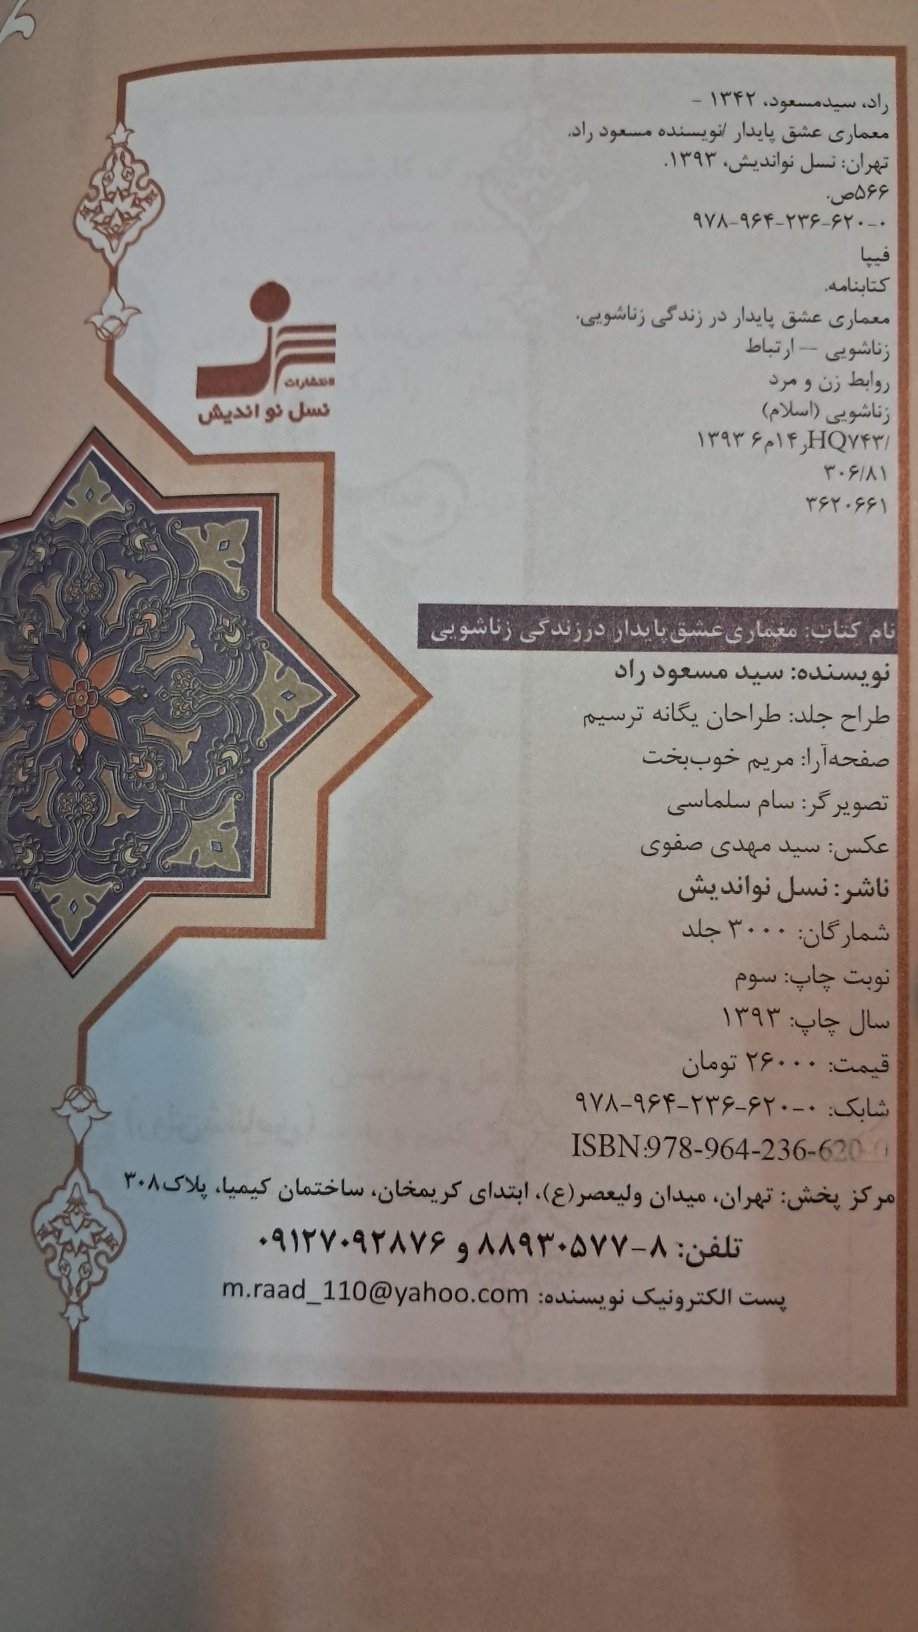 راد، سیدمسعود، ۱۳۴۲ -
معماری عشق پایدار /نویسنده مسعود راد.
تهران: نسل نواندیش، ۱۳۹۳.
۵۶۶ص.
۹۷۸-۹۶۴-۲۳۶-۶۲۰-۰
فیپا
کتابنامه.
معماری عشق پایدار در زندگی زناشویی.
زناشویی -- ارتباط
روابط زن و مرد
زناشویی (اسلام)
HQ۷۴۳/ر۱۴م۶ ۱۳۹۳
۳۰۶/۸۱
۳۶۲۰۶۶۱
انتشارات
نسل نو اندیش
نام کتاب: معماری عشق پایدار در زندگی زناشویی
نویسنده: سید مسعود راد
طراح جلد: طراحان یگانه ترسیم
صفحه‌آرا: مریم خوب‌بخت
تصویرگر: سام سلماسی
عکس: سید مهدی صفوی
ناشر: نسل نواندیش
شمارگان: ۳۰۰۰ جلد
نوبت چاپ: سوم
سال چاپ: ۱۳۹۳
قیمت: ۲۶۰۰۰ تومان
شابک: ۰-۶۲۰-۲۳۶-۹۶۴-۹۷۸
ISBN:978-964-236-620-0
مرکز پخش: تهران، میدان ولیعصر(ع)، ابتدای کریمخان، ساختمان کیمیا، پلاک۳۰۸
تلفن: ۸-۸۸۹۳۰۵۷۷ و ۰۹۱۲۷۰۹۲۸۷۶
پست الکترونیک نویسنده: m.raad_110@yahoo.com